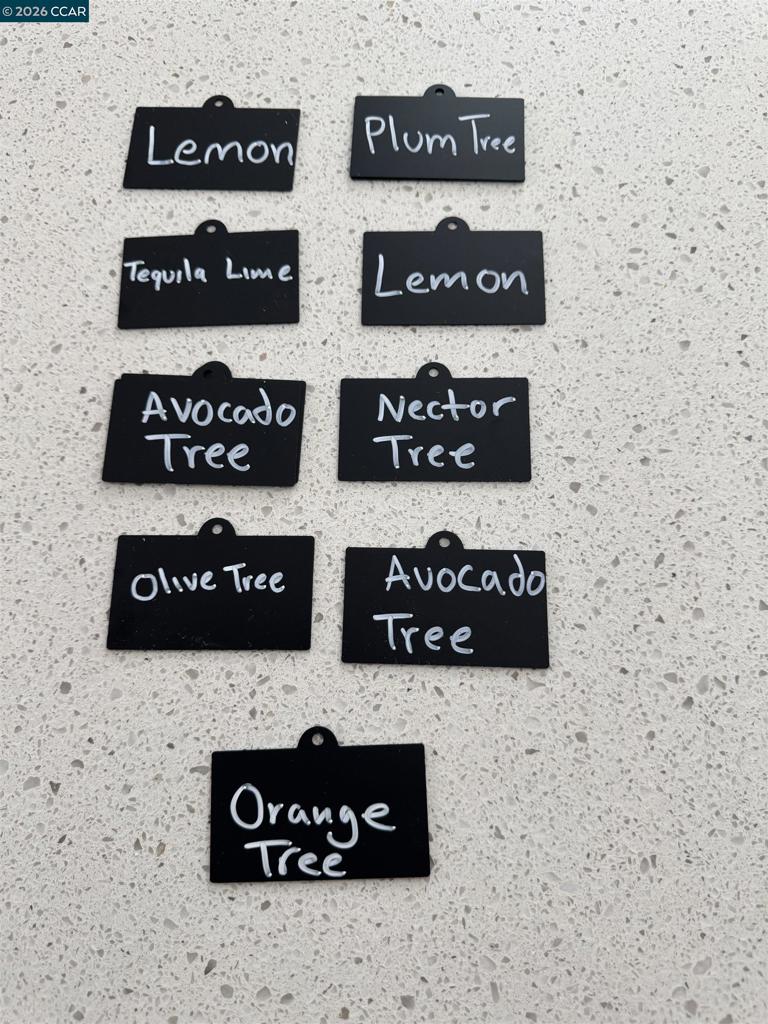 © 2026 CCAR
Lemon
Plum Tree
Tequila Lime
Lemon
Avocado
Tree
Nector
Tree
Olive Tree
Avocado
Tree
Orange
Tree